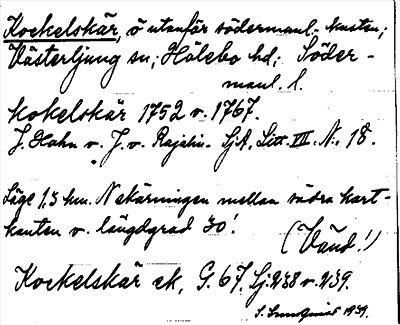 Kockelskär, ö utanför södermanl. kusten;
Västerljung sn; Hölebo hd; Söder-
manl. l.
Kokelskär 1752 v. 1767.
J. Hahn v. J. v. Rajalin. SjA, Litt. VII. N:. 18.
Läge 1,5 km. N skärningen mellan södra kart-
kanten v. längdgrad 30'.
(Vänd!)
Kockelskär ek, G. 67, Sj. 238 v. 239.
S. Lundqvist 1939.